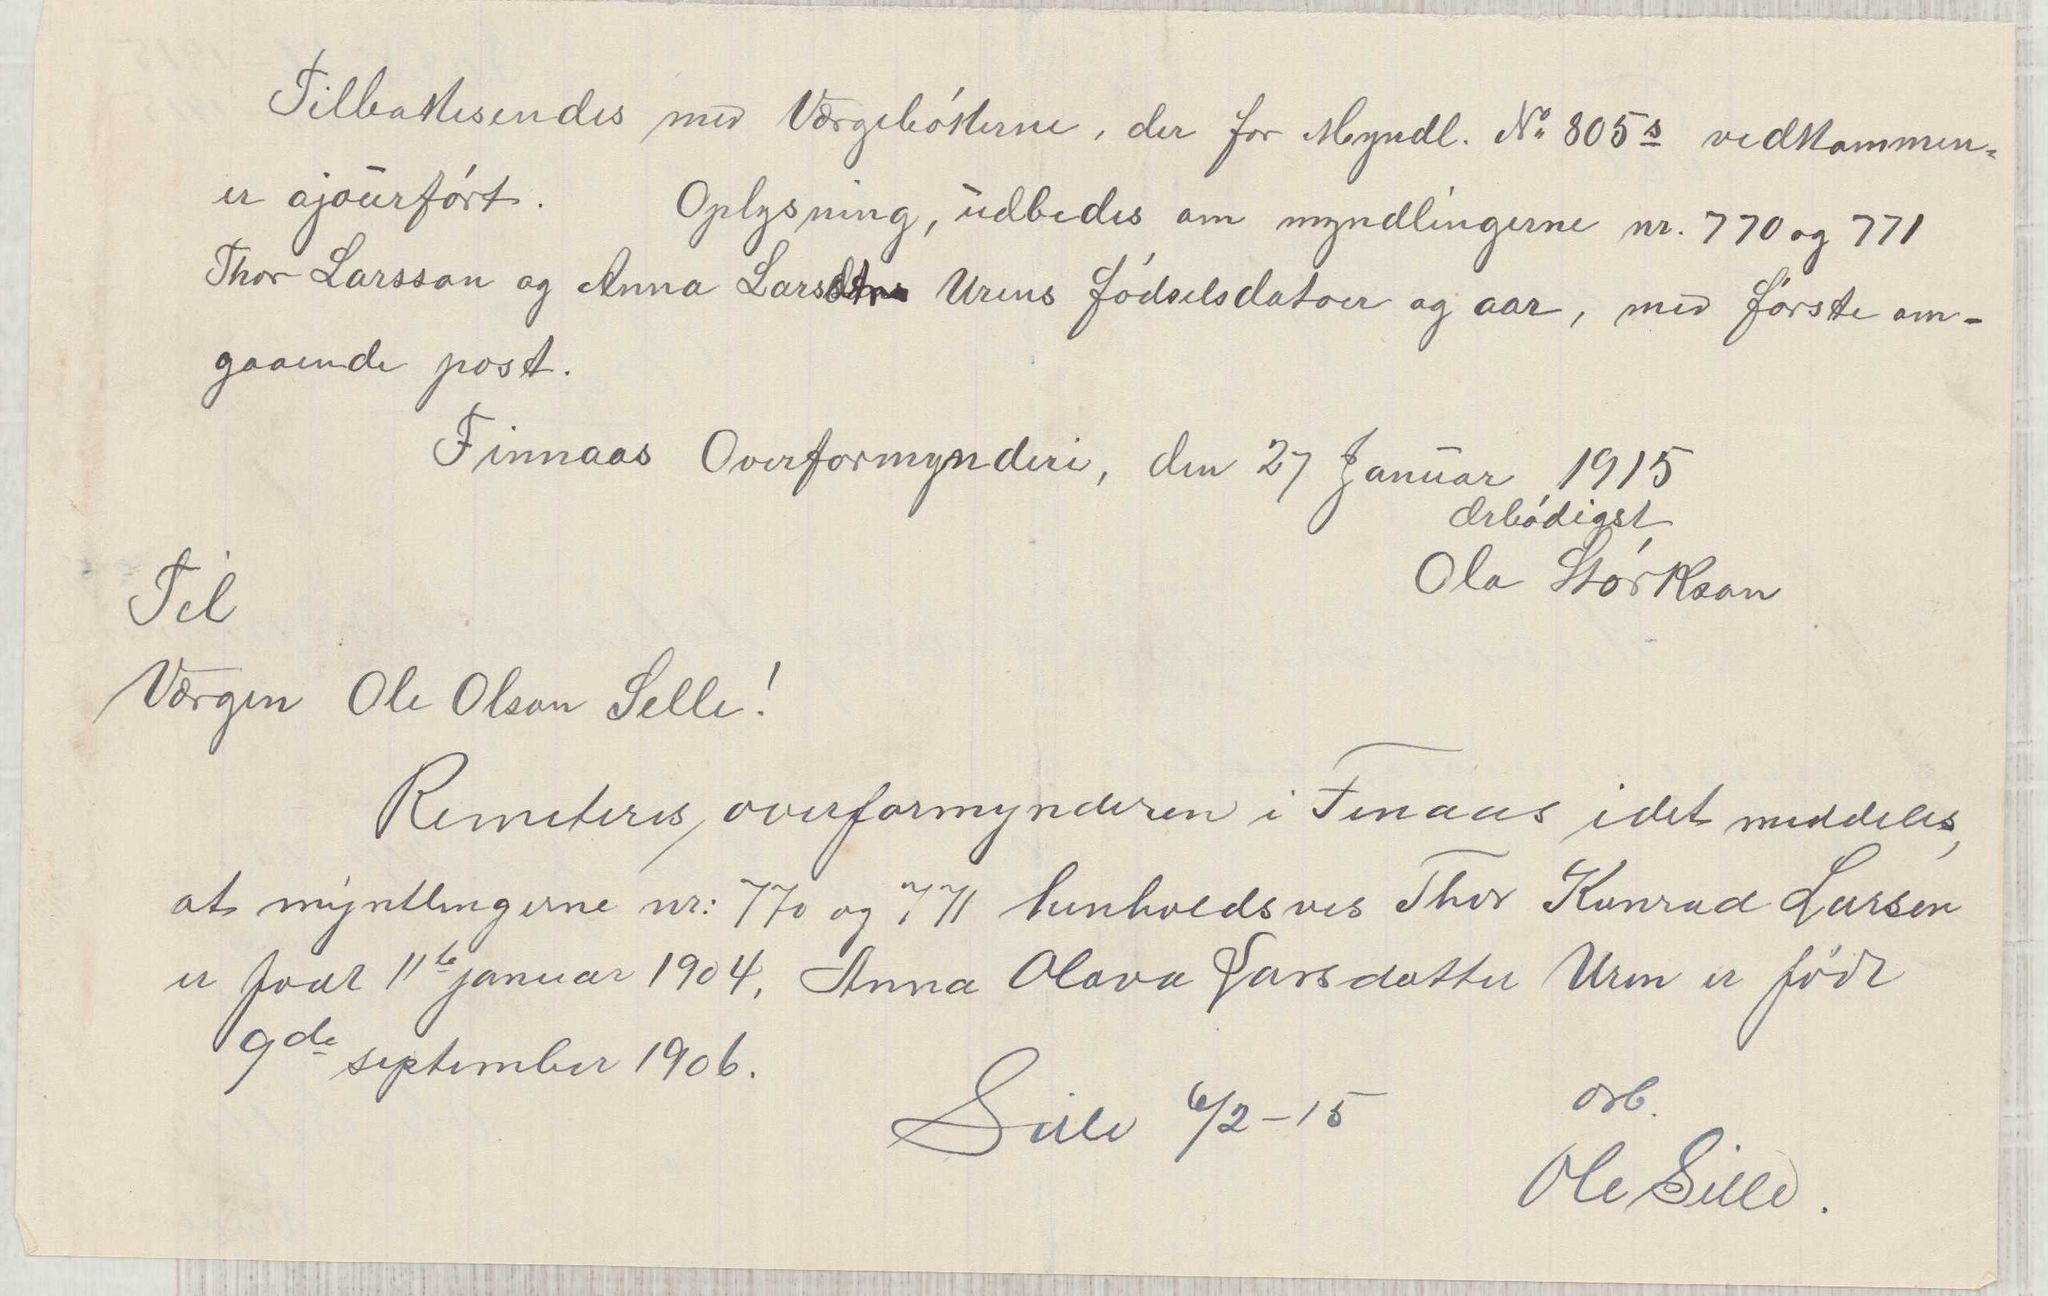 Tilbakesendes med Værgebókerne, der for Myndl. No 805s vedkommen-
er ajourfórt. Oplysning, udbedes om myndlingerne nr. 770 og 771
Thor Larsson og Anna Larsdtrs Urens fódselsdatoer og aar, med fórste om-
gaaende post.
Finnaas Overformynderi, den 27 Januar 1915
ærbódigst
Ola Stórkson
Til
Værgen Ole Olson Selle!
Remeteres, overformynderen i Finaas idet meddeles,
at myntlingerne nr: 770 og 771 henholdsves Thor Konrad Larsen
er født 11te januar 1904, Anna Olava Larsdatter Uren er født
9de september 1906.
Sille 6/2-15 ærb.
Ole Sille.